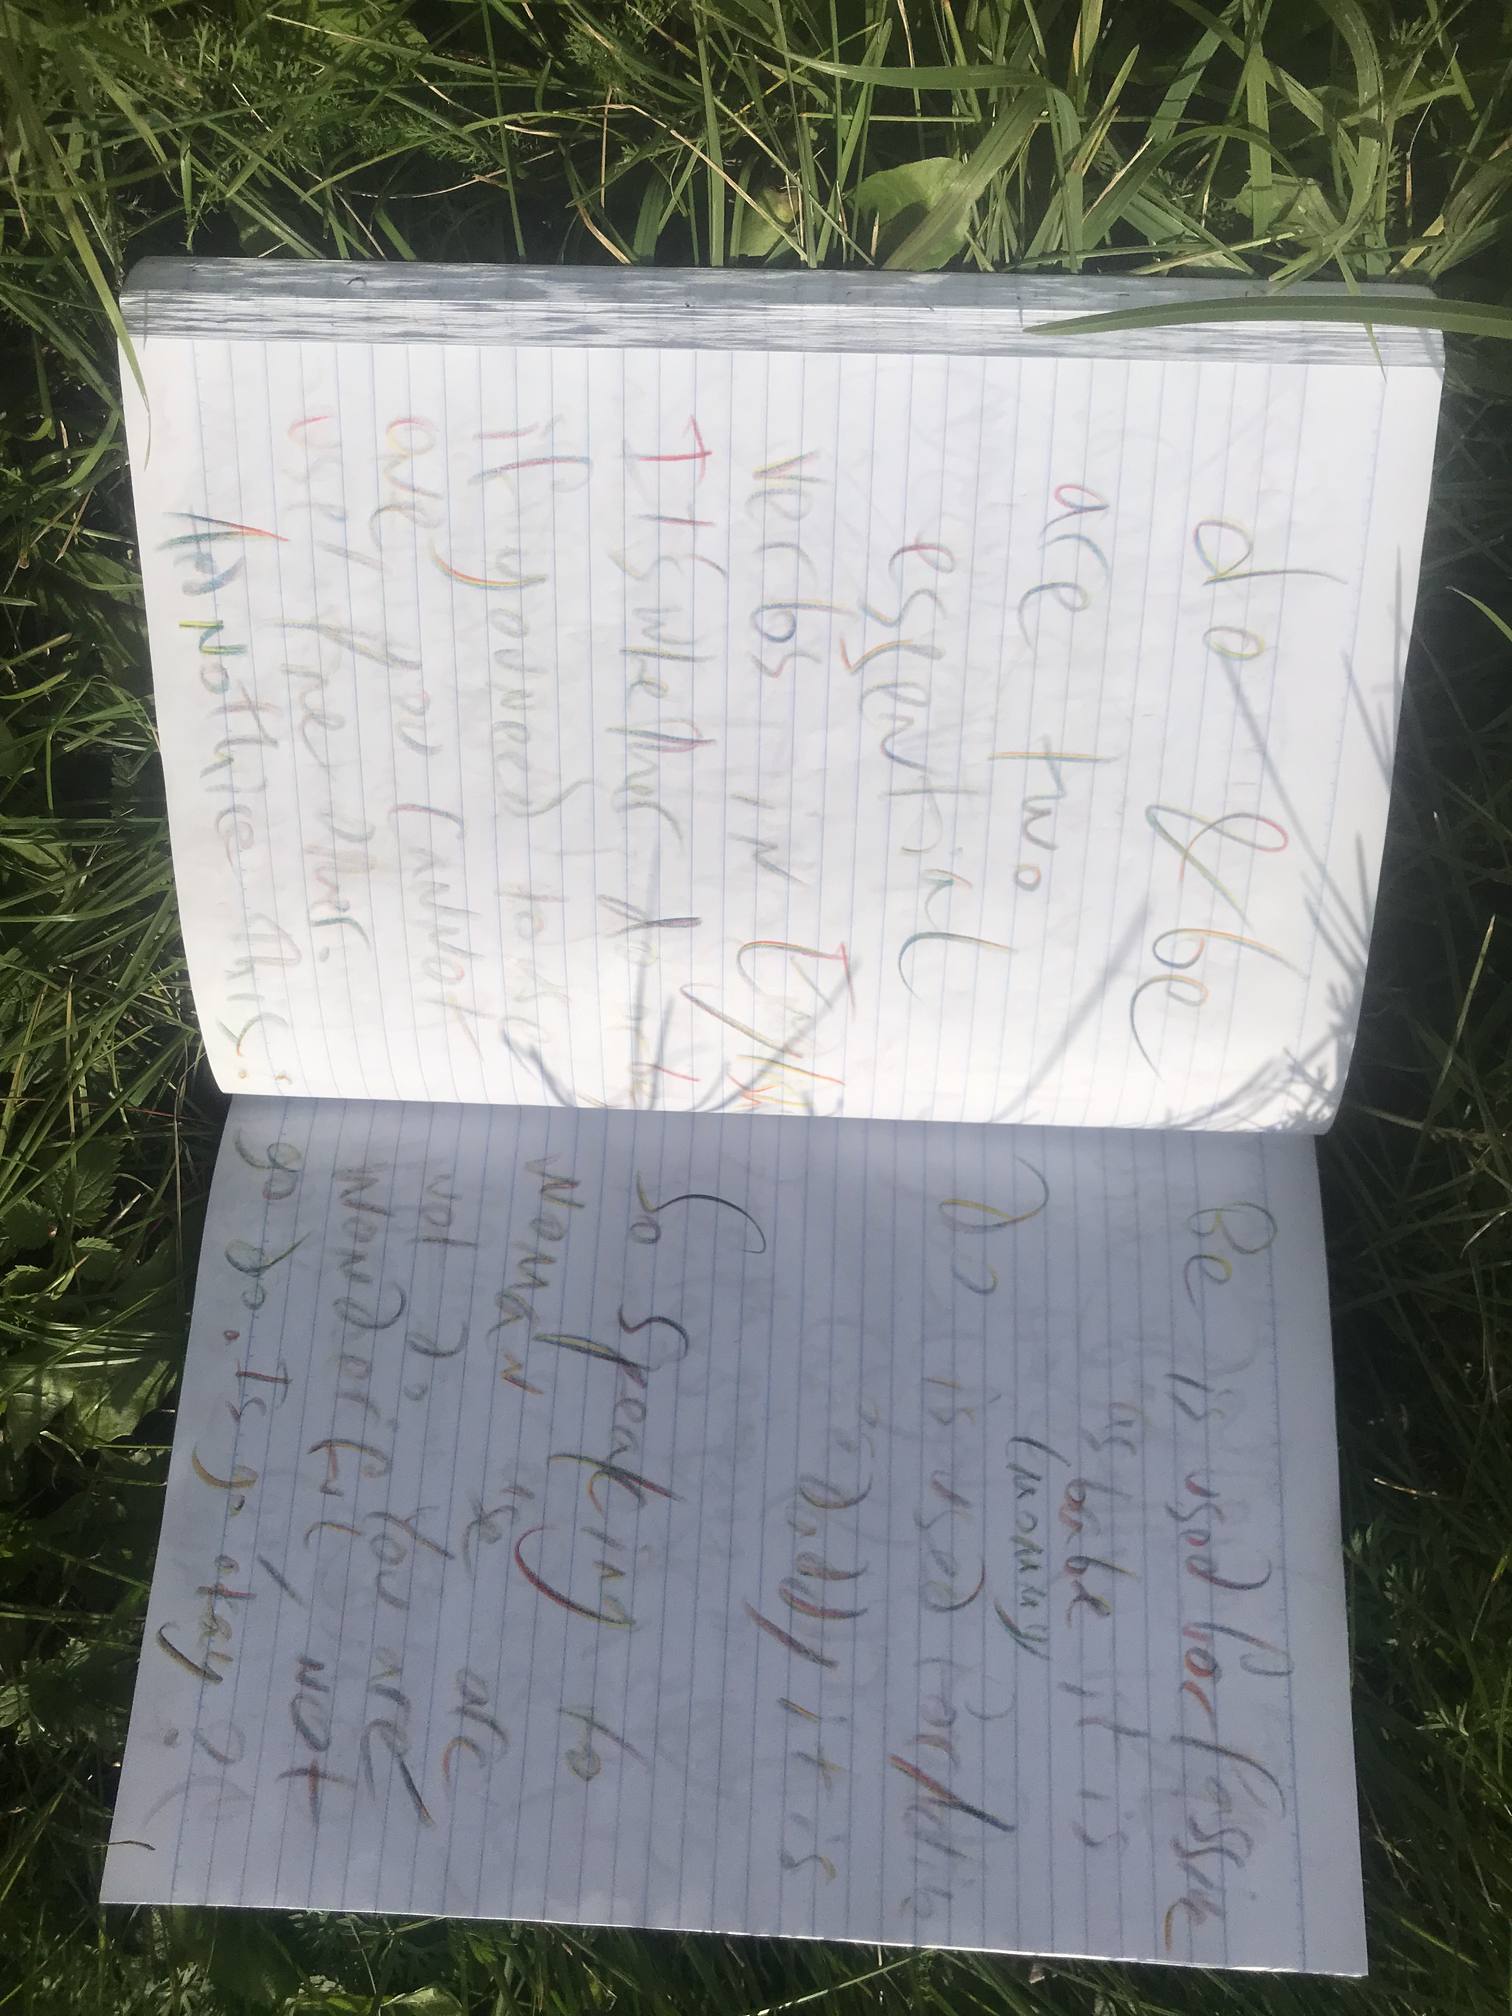 do & be
are two
essential
verbs in
It is whether
if you need to use
one you cannot
use the other.
Another this:
Be is used for Passive
as babe it is
(mommy
Do is used for
as daddy it is
So speaking to
woman is are
not do. You are
wonderful, not
go do. Is go okay?